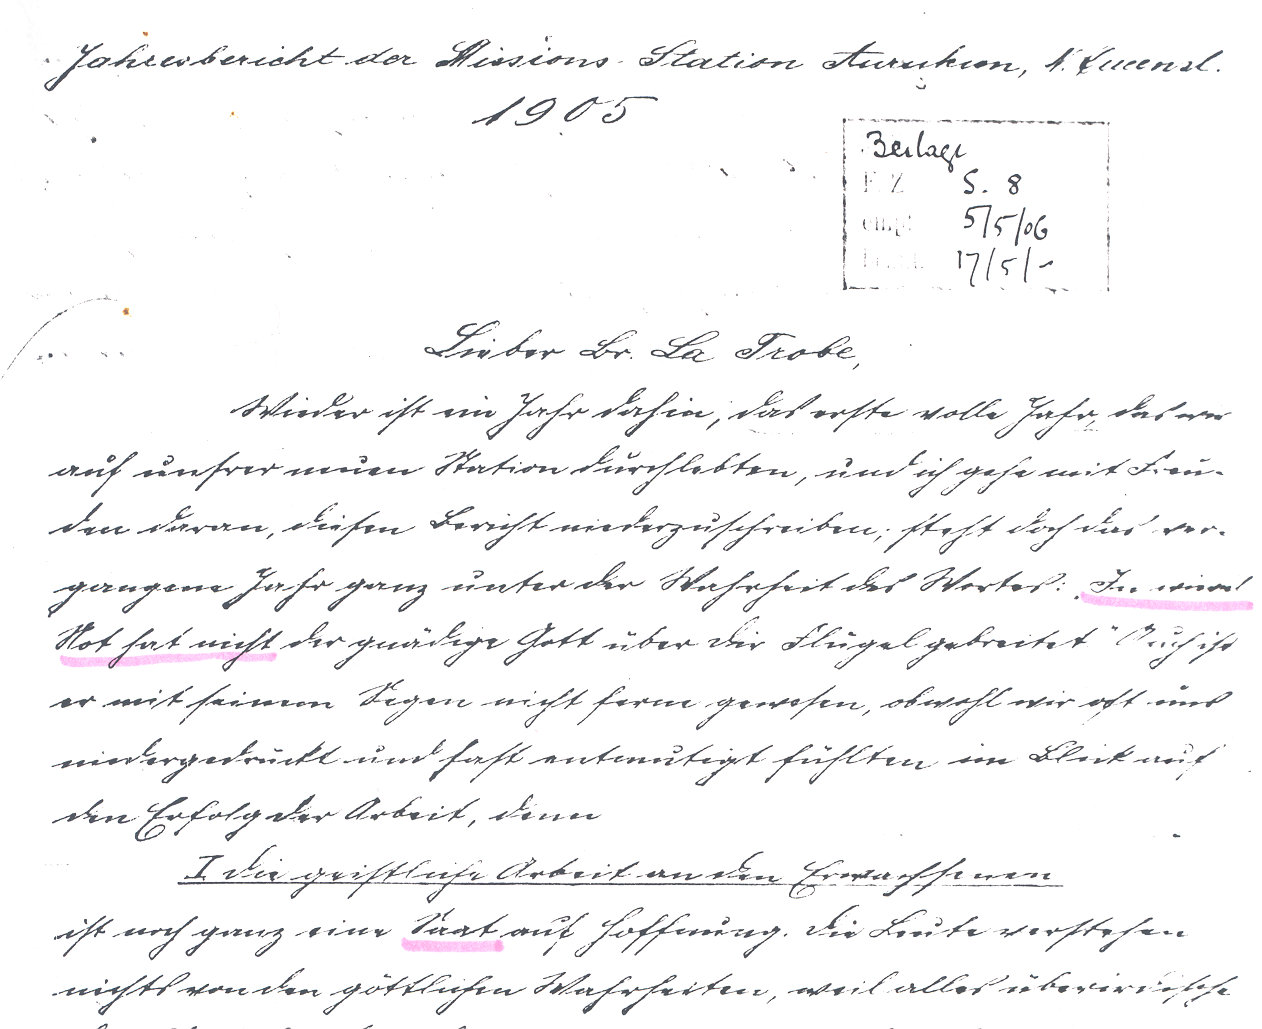 Jahresbericht der Missions-Station Aurukun, N. Queensl.
1905
Beilage
F. Z. S. 8
empf. 5/5/06
17/5/-
Lieber Br. La Trobe,
Wieder ist ein Jahr dahin, das erste volle Jahr, das wir
auf unsrer neuen Station durchlebten, und ich gehe mit Freu-
den daran, diesen Bericht niederzuschreiben; steht doch das ver-
gangene Jahr ganz unter der Wahrheit des Wortes: „In wieviel
Not hat nicht der gnädige Gott über dir Flügel gebreitet" Auch ist
er mit seinem Segen nicht ferne gewesen, obwohl wir oft uns
niedergedrückt und fast entmutigt fühlten im Blick auf
den Erfolg der Arbeit, denn
I Die geistliche Arbeit an den Erwachsenen
ist noch ganz eine Saat auf Hoffnung. Die Leute verstehen
nichts von den göttlichen Wahrheiten, weil alles überirdische